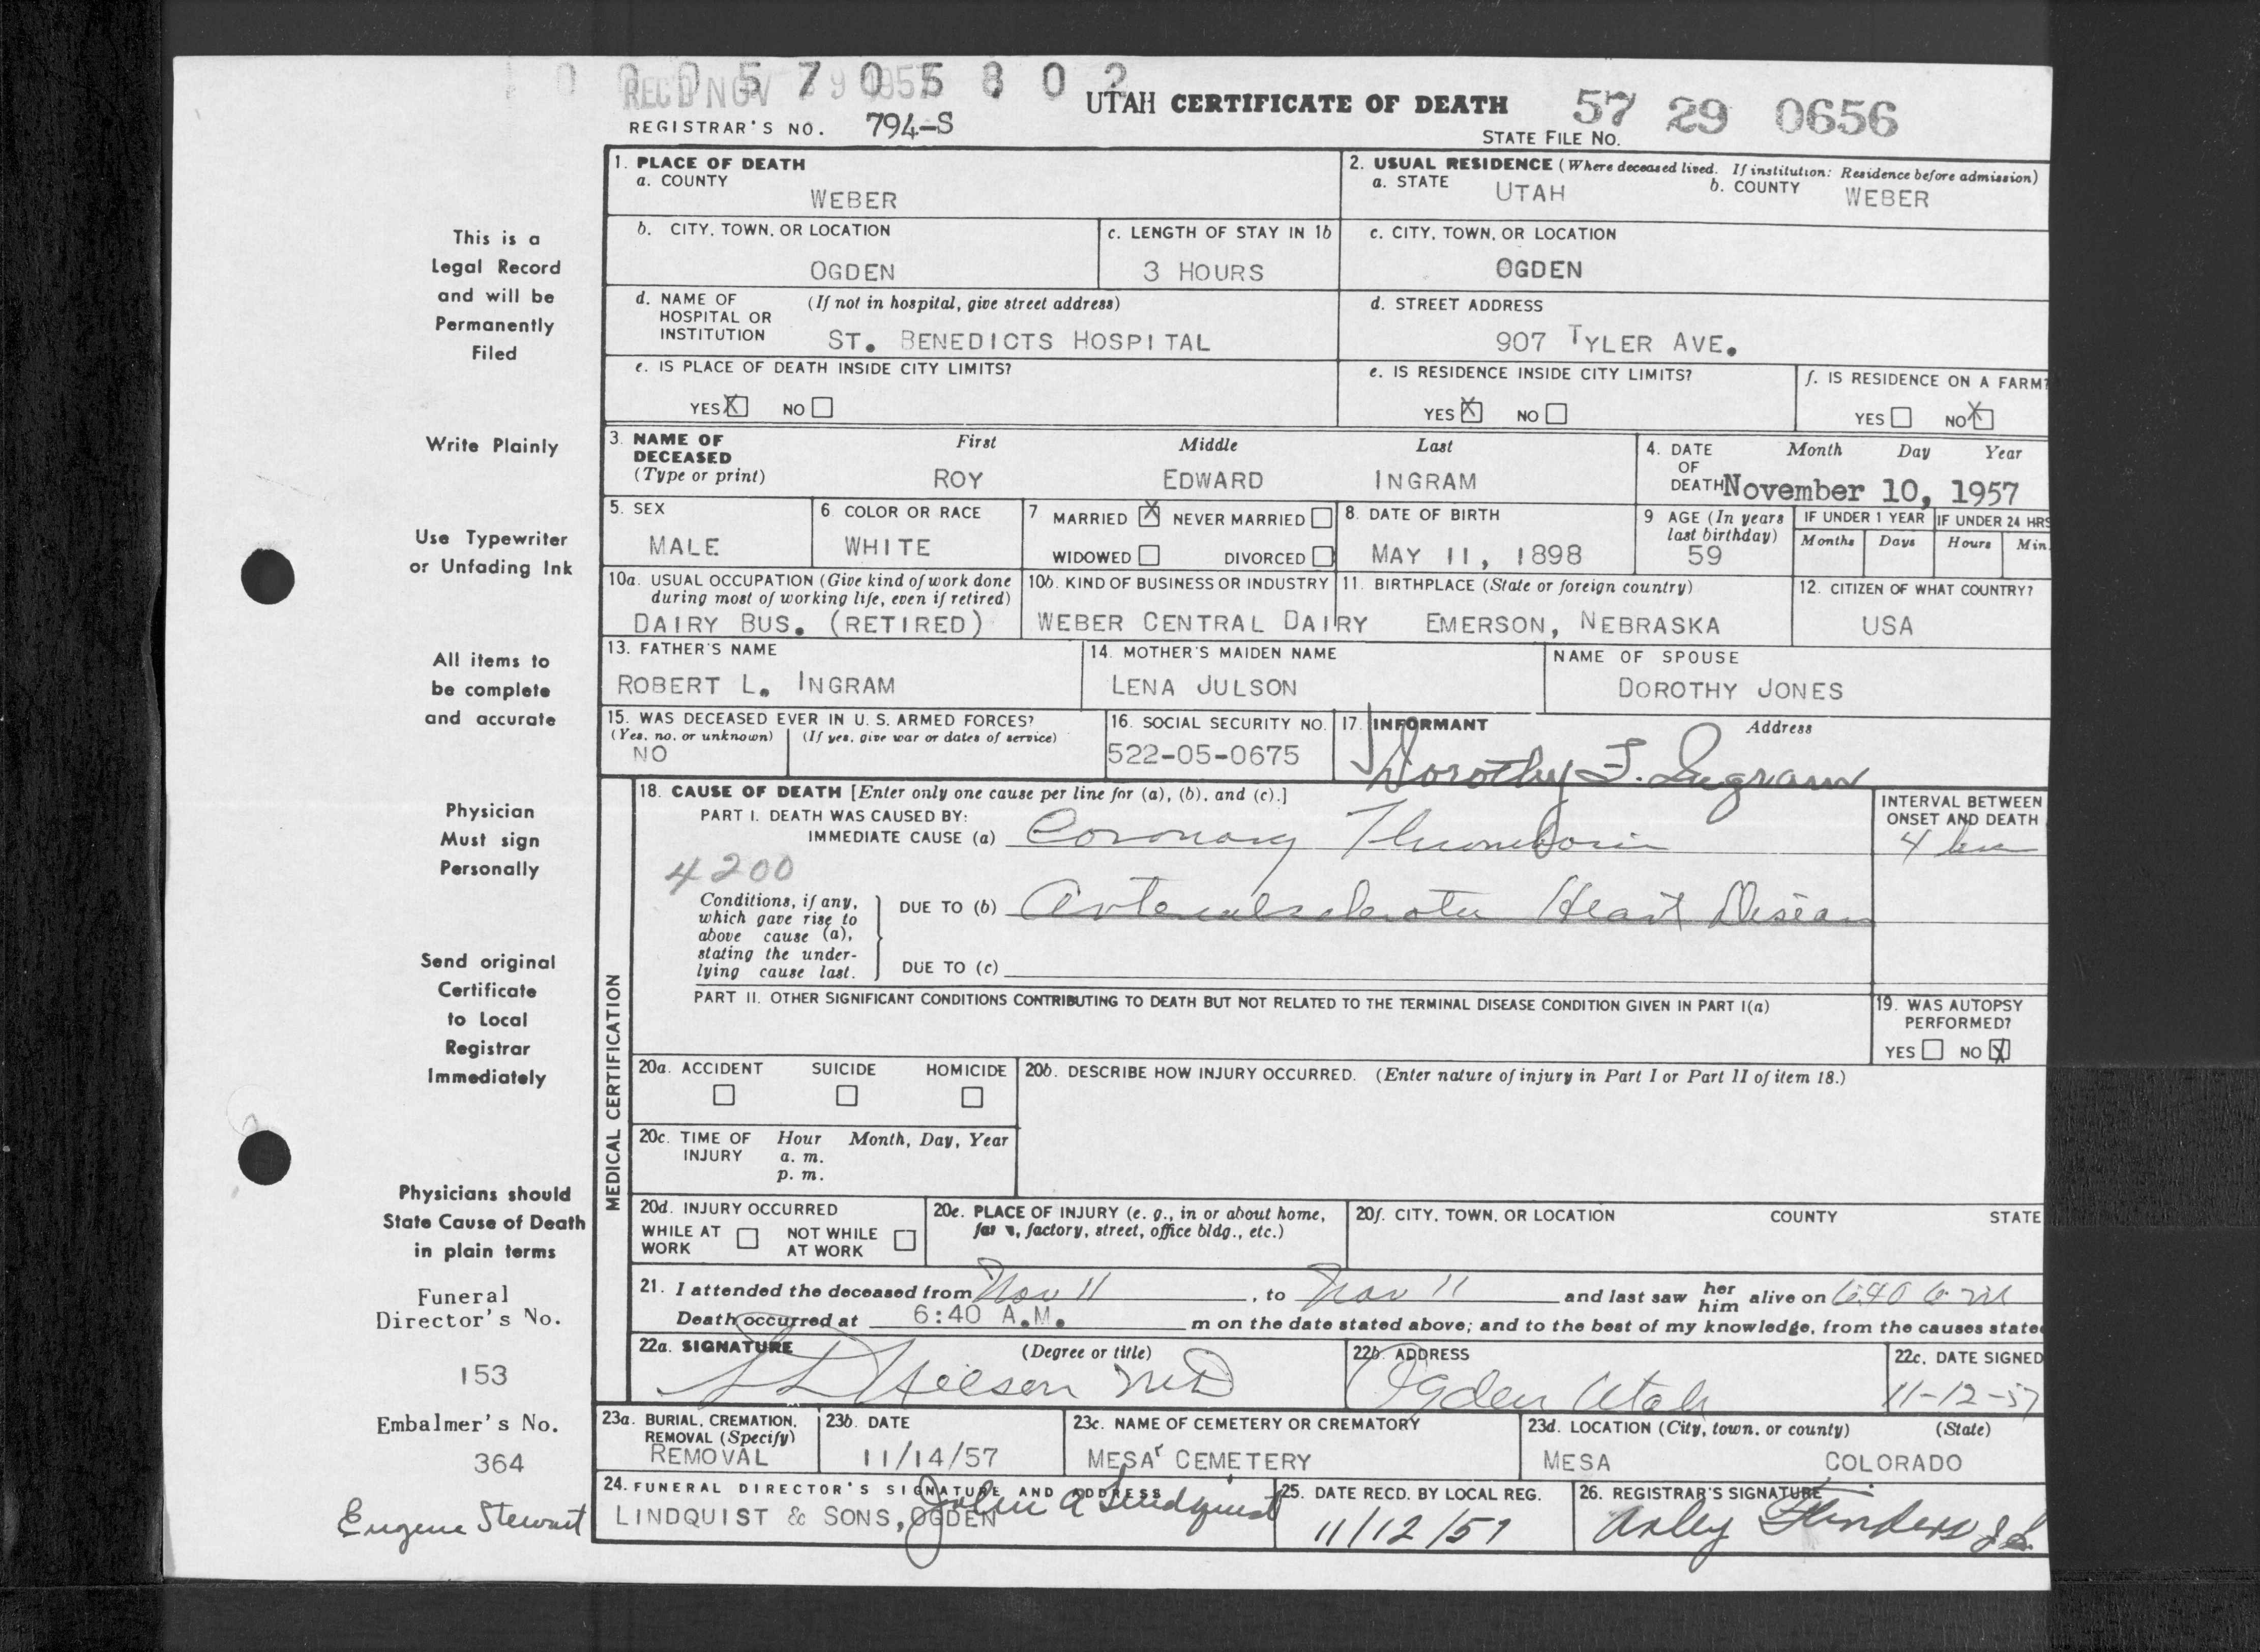 1 0 0 0 5 7 0 5 8 0 2
REC'D NOV 1957
UTAH CERTIFICATE OF DEATH
57 29 0656
REGISTRAR'S NO. 794-S
STATE FILE No.
1. PLACE OF DEATH
a. COUNTY
WEBER
2. USUAL RESIDENCE (Where deceased lived. If institution: Residence before admission)
a. STATE UTAH b. COUNTY WEBER
b. CITY, TOWN, OR LOCATION
OGDEN
c. LENGTH OF STAY IN 1b
3 HOURS
c. CITY, TOWN, OR LOCATION
OGDEN
d. NAME OF HOSPITAL OR INSTITUTION (If not in hospital, give street address)
ST. BENEDICTS HOSPITAL
d. STREET ADDRESS
907 TYLER AVE.
e. IS PLACE OF DEATH INSIDE CITY LIMITS?
YES X NO
e. IS RESIDENCE INSIDE CITY LIMITS?
YES X NO
f. IS RESIDENCE ON A FARM?
YES NO X
3. NAME OF DECEASED (Type or print)
First Middle Last
ROY EDWARD INGRAM
4. DATE OF DEATH Month Day Year
November 10, 1957
5. SEX
MALE
6. COLOR OR RACE
WHITE
7 MARRIED X NEVER MARRIED
WIDOWED DIVORCED
8. DATE OF BIRTH
MAY 11, 1898
9 AGE (In years last birthday)
59
IF UNDER 1 YEAR
Months Days
IF UNDER 24 HRS
Hours Min.
10a. USUAL OCCUPATION (Give kind of work done during most of working life, even if retired)
DAIRY BUS. (RETIRED)
10b. KIND OF BUSINESS OR INDUSTRY
WEBER CENTRAL DAIRY
11. BIRTHPLACE (State or foreign country)
EMERSON, NEBRASKA
12. CITIZEN OF WHAT COUNTRY?
USA
13. FATHER'S NAME
ROBERT L. INGRAM
14. MOTHER'S MAIDEN NAME
LENA JULSON
NAME OF SPOUSE
DOROTHY JONES
15. WAS DECEASED EVER IN U. S. ARMED FORCES?
(Yes, no, or unknown) (If yes, give war or dates of service)
NO
16. SOCIAL SECURITY NO.
522-05-0675
17. INFORMANT Address
Dorothy F. Ingram
18. CAUSE OF DEATH [Enter only one cause per line for (a), (b), and (c).]
PART I. DEATH WAS CAUSED BY:
IMMEDIATE CAUSE (a) Coronary Thrombosis
INTERVAL BETWEEN ONSET AND DEATH
4 hrs
4200
Conditions, if any, which gave rise to above cause (a), stating the underlying cause last.
DUE TO (b) Arteriosclerotic Heart Disease
DUE TO (c)
PART II. OTHER SIGNIFICANT CONDITIONS CONTRIBUTING TO DEATH BUT NOT RELATED TO THE TERMINAL DISEASE CONDITION GIVEN IN PART I(a)
19. WAS AUTOPSY PERFORMED?
YES NO X
20a. ACCIDENT SUICIDE HOMICIDE
20b. DESCRIBE HOW INJURY OCCURRED. (Enter nature of injury in Part I or Part II of item 18.)
20c. TIME OF INJURY Hour Month, Day, Year
a. m.
p. m.
20d. INJURY OCCURRED
WHILE AT WORK NOT WHILE AT WORK
20e. PLACE OF INJURY (e. g., in or about home, farm, factory, street, office bldg., etc.)
20f. CITY, TOWN, OR LOCATION COUNTY STATE
21. I attended the deceased from Nov 11, to Nov 11 and last saw her him alive on 6:40
Death occurred at 6:40 A.M. m on the date stated above; and to the best of my knowledge, from the causes stated
22a. SIGNATURE (Degree or title)
MD
22b. ADDRESS
Ogden Utah
22c. DATE SIGNED
11-12-57
23a. BURIAL, CREMATION, REMOVAL (Specify)
REMOVAL
23b. DATE
11/14/57
23c. NAME OF CEMETERY OR CREMATORY
MESA CEMETERY
23d. LOCATION (City, town, or county) (State)
MESA COLORADO
24. FUNERAL DIRECTOR'S SIGNATURE AND ADDRESS
LINDQUIST & SONS, OGDEN
John A Lindquist
25. DATE RECD. BY LOCAL REG.
11/12/57
26. REGISTRAR'S SIGNATURE
Arley Flinders
MEDICAL CERTIFICATION
This is a
Legal Record
and will be
Permanently
Filed
Write Plainly
Use Typewriter
or Unfading Ink
All items to
be complete
and accurate
Physician
Must sign
Personally
Send original
Certificate
to Local
Registrar
Immediately
Physicians should
State Cause of Death
in plain terms
Funeral
Director's No.
153
Embalmer's No.
364
Eugene Stewart